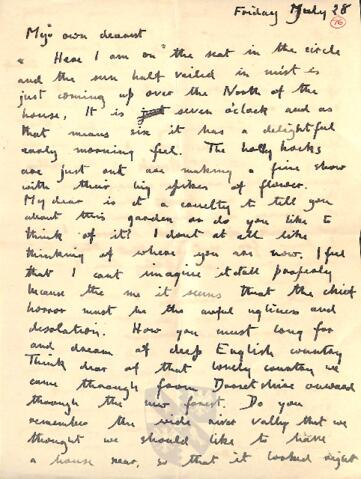 Friday July 28
76
My own dearest
Here I am on the seat in the circle
and the sun half veiled in mist is
just coming up over the North of the
house, It is seven o'clock and as
that means six it has a delightful
early morning feel. The holly hocks
are just out are making a fine show
with their big spikes of flower.
My dear is it a cruelty to tell you
about this garden or do you like to
think of it? I dont at all like
thinking of where you are now. I feel
that I cant imagine it all properly
because to me it seems that the chief
horror must be the awful ugliness and
desolation. How you must long for
and dream of deep English country
Think dear of that lovely country we
came through from Dorsetshire onward
through the new forest. Do you
remember the wide river valley that we
thought we should like to have
a house near, so that it looked right